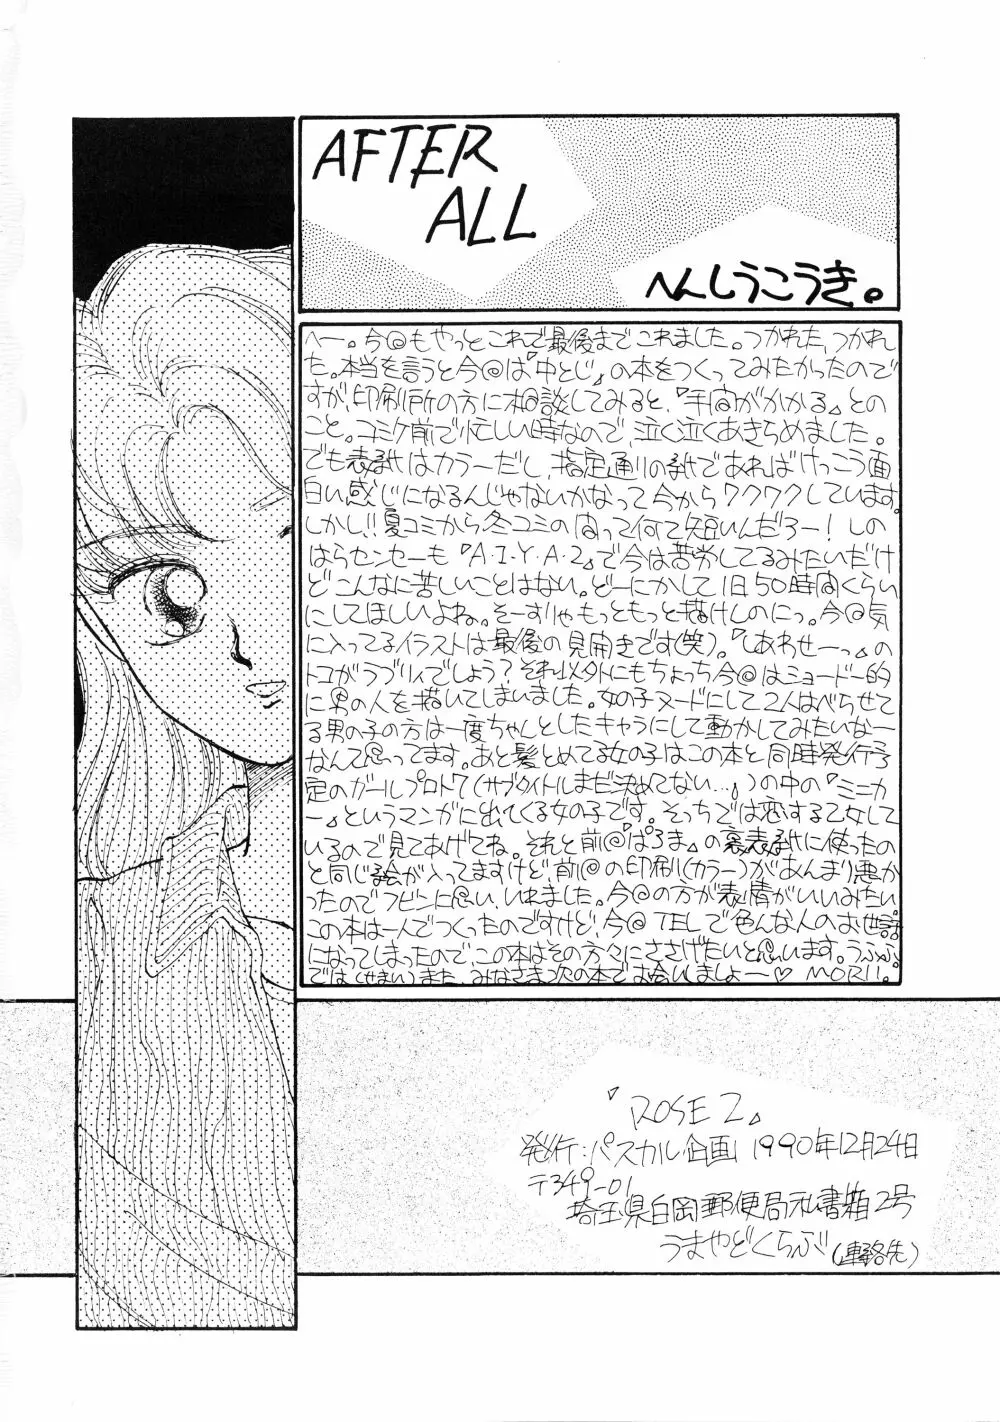 AFTER
ALL
へんしうこうき。
へー。今@もやっとこれで最後までこれました。つかれた、つかれ
た。本当を言うと今@は『中とじ』の本をつくってみたかったので
すが、印刷所の方に相談してみると、『手間がかかる』との
こと。コミケ前で忙しい時なので、泣く泣くあきらめました。
でも表紙はカラーだし、指定通りの紙であればけっこう面
白い感じになるんじゃないかなって今からワクワクしています。
しかし!!夏コミから冬コミの間って何て短いんだろー!しの
はらセンセーも『A・I・Y・A・2』で今は苦労してるみたいだけ
どこんなに苦しいことはない。どーにかして1日50時間くらい
にしてほしいよね。そーすりゃもっともっと描けしのにっ。今@気
に入ってるイラストは最後の見開きです(笑)。『しあわせーっ』の
トコがラブリィでしょう?それ以外にもちょっち今@はショードー的
に男の人を描いてしまいました。女の子ヌードにして2人はべらせて
る男の子の方は一度ちゃんとしたキャラにして動かしてみたいなー
なんて思ってます。あと髪とめてる女の子はこの本と同時発行予
定のガールプロト7(サブタイトルまだ決めてない…。)の中の『ミニカ
ー』というマンガに出てくる女の子です。そっちでは恋する乙女して
いるので見てあげてね。それと前@『ぱろま』の裏表紙に使ったの
と同じ絵が入ってますけど、前@の印刷(カラー)があんまり悪か
ったのでフビンに思い、いれました。今@の方が表情がいいみたい。
この本は一人でつくったのですけど、今@TELで色んな人のお世話
になってしまったので、この本はその方々にささげたいと思います。うふふ
では(せまい)また、みなさま次の本でお会いしましょー♡ MORII。
『ROSE 2』
発行:パスカル企画 1990年12月24日
〒349-01
埼玉県白岡郵便局私書箱2号
うまやどくらぶ(連絡先)